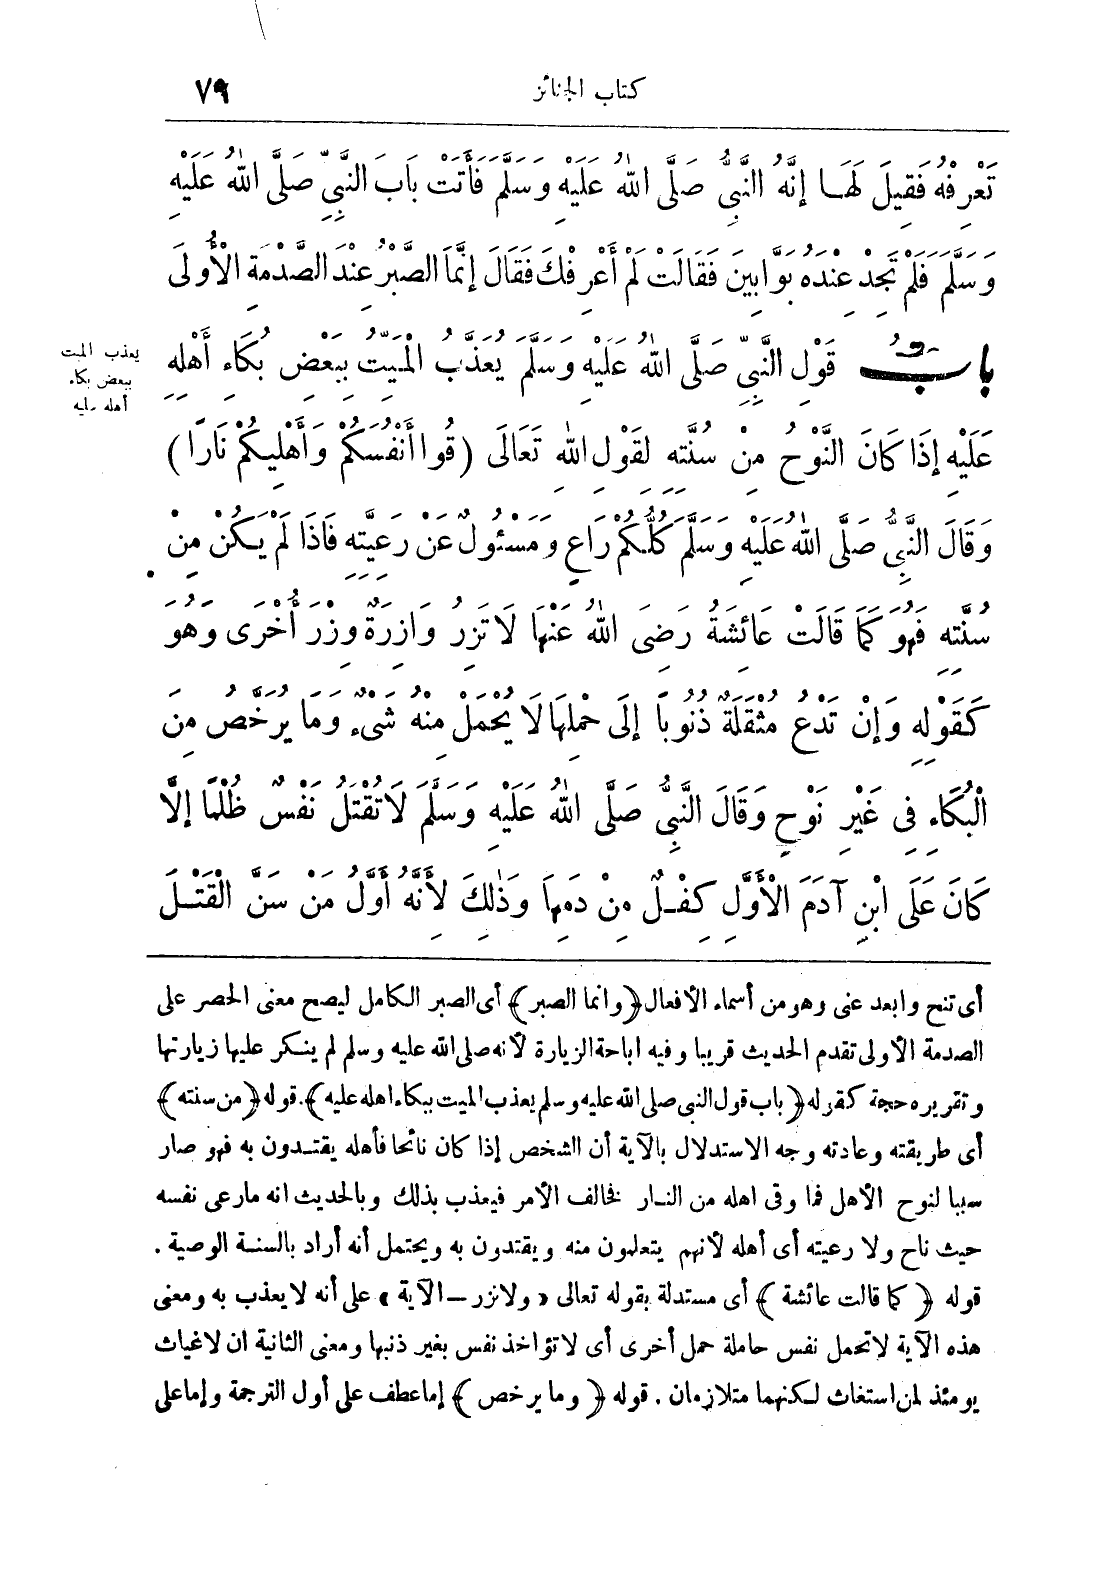 كتاب الجنائز ٧٩
تَعْرِفْهُ فَقِيلَ لَهَا إِنَّهُ النَّبِىُّ صَلَّى اللهُ عَلَيْهِ وَسَلَّمَ فَأَتَتْ بَابَ النَّبِىِّ صَلَّى اللهُ عَلَيْهِ
وَسَلَّمَ فَلَمْ تَجِدْ عِنْدَهُ بَوَّابِينَ فَقَالَتْ لَمْ أَعْرِفْكَ فَقَالَ إِنَّمَا الصَّبْرُ عِنْدَ الصَّدْمَةِ الْأُولَى
بَابُ قَوْلِ النَّبِىِّ صَلَّى اللهُ عَلَيْهِ وَسَلَّمَ يُعَذَّبُ الْمَيِّتُ بِبَعْضِ بُكَاءِ أَهْلِهِ
يعذب الميت
ببعض بكاء
أهله عليه
عَلَيْهِ إِذَا كَانَ النَّوْحُ مِنْ سُنَّتِهِ لِقَوْلِ اللهِ تَعَالَى (قُوا أَنْفُسَكُمْ وَأَهْلِيكُمْ نَارًا)
وَقَالَ النَّبِىُّ صَلَّى اللهُ عَلَيْهِ وَسَلَّمَ كُلُّكُمْ رَاعٍ وَمَسْئُولٌ عَنْ رَعِيَّتِهِ فَاذَا لَمْ يَكُنْ مِنْ
سُنَّتِهِ فَهُوَ كَمَا قَالَتْ عَائِشَةُ رَضِىَ اللهُ عَنْهَا لَا تَزِرُ وَازِرَةٌ وِزْرَ أُخْرَى وَهُوَ
كَقَوْلِهِ وَإِنْ تَدْعُ مُثْقَلَةٌ ذُنُوبًا إِلَى حِمْلِهَا لَا يُحْمَلْ مِنْهُ شَىْءٌ وَمَا يُرَخَّصُ مِنَ
الْبُكَاءِ فِى غَيْرِ نَوْحٍ وَقَالَ النَّبِىُّ صَلَّى اللهُ عَلَيْهِ وَسَلَّمَ لَا تُقْتَلُ نَفْسٌ ظُلْمًا إِلَّا
كَانَ عَلَى ابْنِ آدَمَ الْأَوَّلِ كِفْلٌ مِنْ دَمِهَا وَذَلِكَ لِأَنَّهُ أَوَّلُ مَنْ سَنَّ الْقَتْلَ
أى تنح وابعد عنى وهو من أسماء الأفعال ﴿وانما الصبر﴾ أى الصبر الكامل ليصح معنى الحصر على
الصدمة الأولى تقدم الحديث قريبا وفيه اباحة الزيارة لأنه صلى الله عليه وسلم لم ينكر عليها زيارتها
وتقريره حجة كقوله ﴿باب قول النبى صلى الله عليه وسلم يعذب الميت ببكاء اهله عليه﴾. قوله ﴿من سنته﴾
أى طريقته وعادته وجه الاستدلال بالآية أن الشخص إذا كان نائحا فأهله يقتدون به فهو صار
سببا لنوح الأهل فما وقى اهله من النار فخالف الأمر فيعذب بذلك وبالحديث انه مارعى نفسه
حيث ناح ولا رعيته أى أهله لأنهم يتعلمون منه ويقتدون به ويحتمل أنه أراد بالسنة الوصية .
قوله ﴿كما قالت عائشة﴾ أى مستدلة بقوله تعالى «ولاتزر — الآية» على أنه لا يعذب به ومعنى
هذه الآية لاتحمل نفس حاملة حمل أخرى أى لاتؤاخذ نفس بغير ذنبها ومعنى الثانية ان لاغياث
يومئذ لمن استغاث لكنهما متلازمان . قوله ﴿وما يرخص﴾ إما عطف على أول الترجمة وإما على